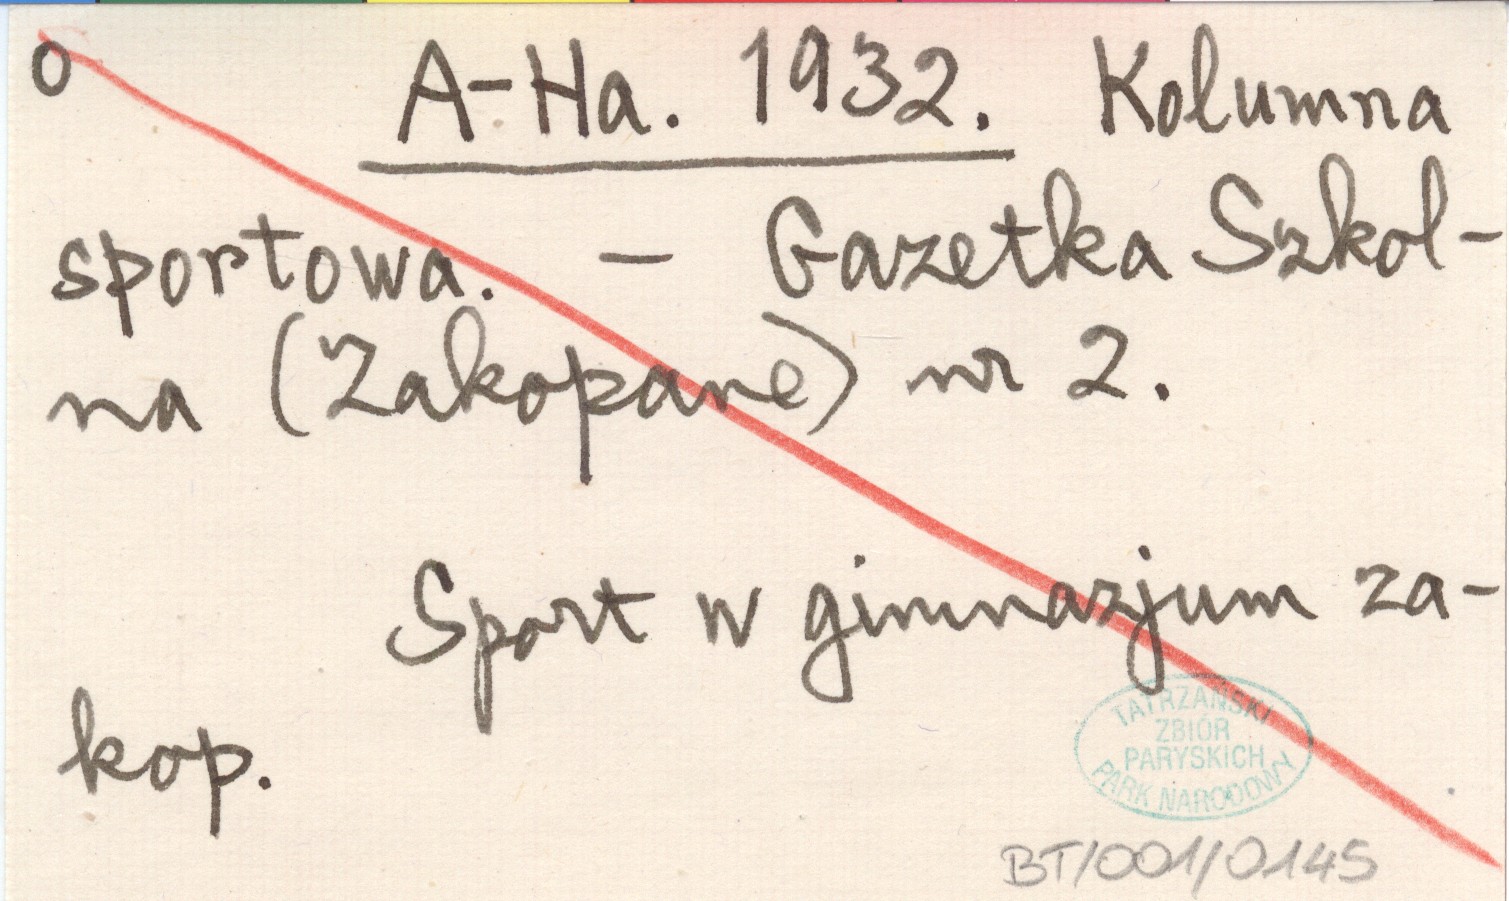 O A-Ha. 1932. Kolumna
sportowa. — Gazetka Szkol-
na (Zakopane) nr 2.
Sport w gimnazjum za-
kop.
TATRZAŃSKI
ZBIÓR
PARYSKICH
PARK NARODOWY
BT/001/0145